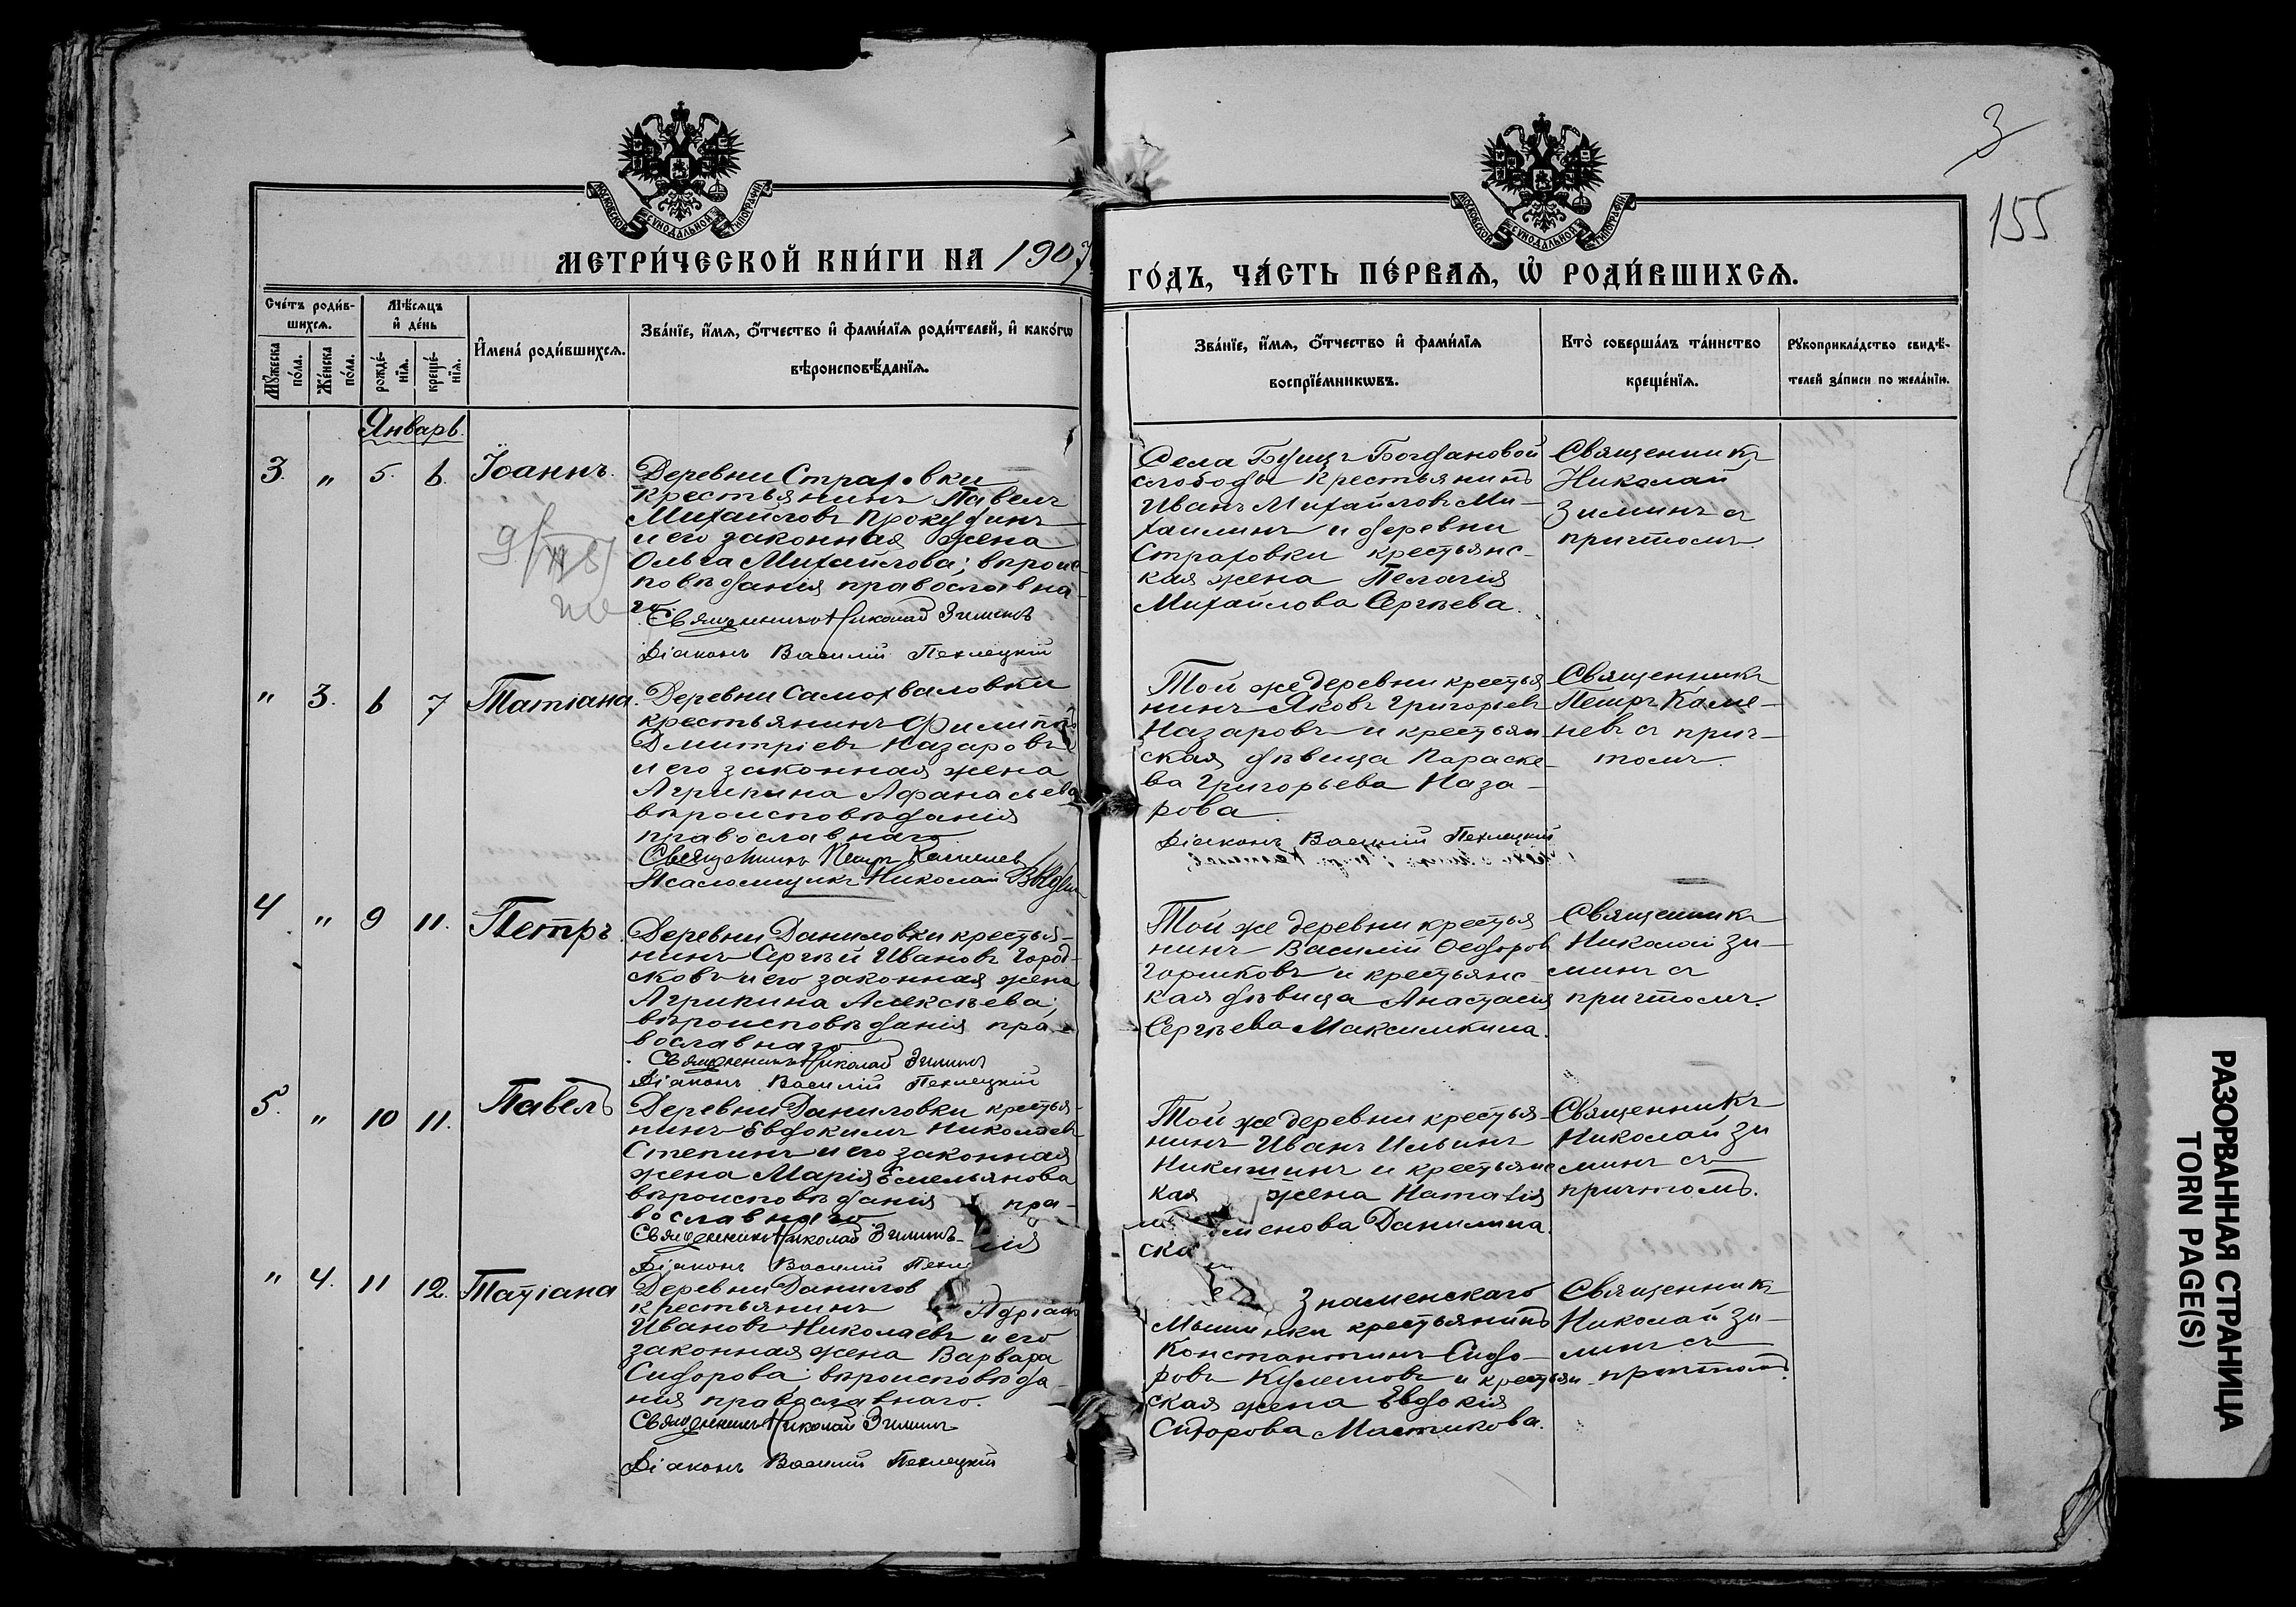 3
155
МОСКОВСКОЙ СУНОДАЛЬНОЙ ТИПОГРАФІИ
МОСКОВСКОЙ СУНОДАЛЬНОЙ ТИПОГРАФІИ
МЕТРИ́ЧЕСКОЙ КНИ́ГИ НА 1907
ГО́ДЪ, ЧА́СТЬ ПЕ́РВАѦ, Ѽ РОДИ́ВШИХСѦ.
Сче́тъ роди́в-
шихсѧ.
Мꙋ́жеска по́ла.
Же́нска по́ла.
Мѣ́сѧцъ
и҆ де́нь
рожде́-
нїѧ.
креще́-
нїѧ.
И҆мена̀ роди́вшихсѧ.
Зва́нїе, и҆́мѧ, ѻ҆́тчество и҆ фами́лїѧ роди́телей, и҆ како́гѡ
вѣроисповѣ́данїѧ.
Зва́нїе, и҆́мѧ, ѻ҆́тчество и҆ фами́лїѧ
воспрїе́мникѡвъ.
Кто̀ соверша́лъ та́инство
креще́нїѧ.
Рꙋкоприкла́дство свидѣ́-
телей за́писи по жела́нїю.
Январь.
3. „ 5. 6. Іоаннъ.
Деревни Страховки
крестьянинъ Павелъ
Михайловъ Прокудинъ
и его законная жена
Ольга Михайлова; вѣроис-
повѣданія православна-
го.
Священникъ Николай Зиминъ
Діаконъ Василій Пехлецкій
Села Бущъ Богдановой
слободы крестьянинъ
Иванъ Михайловъ Ми-
хаилинъ и деревни
Страховки крестьянс-
кая жена Пелагія
Михайлова Сергѣева.
Священникъ
Николай
Зиминъ съ
причтомъ.
„ 3. 6 7 Татіана.
Деревни Самохваловки
крестьянинъ Филиппъ
Дмитріевъ Назаровъ
и его законная жена
Агрипина Афанасьева
вѣроисповѣданія
православнаго
Священникъ Петръ Каменевъ
Псаломщикъ Николай
Той же деревни крестья
нинъ Яковъ Григорьевъ
Назаровъ и крестьян-
ская дѣвица Параске-
ва Григорьева Наза-
рова
Діаконъ Василій Пехлецкій
Священникъ
Петръ Каме-
невъ съ прич-
томъ
4 „ 9 11. Петръ.
Деревни Даниловки крестья-
нинъ Сергѣй Ивановъ Город-
сковъ и его законная жена
Агрипина Алексѣева;
вѣроисповѣданія пра-
вославнаго
Священникъ Николай Зиминъ
Діаконъ Василій Пехлецкій
Той же деревни крестья
нинъ Василій Ѳедоровъ
Горшковъ и крестьянс-
кая дѣвица Анастасія
Сергѣева Максимкина.
Священникъ
Николай Зи-
минъ съ
причтомъ.
5. „ 10 11. Павелъ
Деревни Даниловки крестья-
нинъ Евдокимъ Николаевъ
Степинъ и его законная
жена Марія Емельянова
вѣроисповѣданія пра-
вославнаго
Священникъ Николай Зиминъ
Діаконъ Василій Пехле
Той же деревни крестья-
нинъ Иванъ Ильинъ
Никишинъ и крестьянс
кая жена Наталія
менова Данилина.
Священникъ
Николай Зи
минъ съ
причтомъ.
„ 4. 11 12. Татіана
Деревни Данилов
крестьянинъ Адріанъ
Ивановъ Николаевъ и его
законная жена Варвара
Сидорова; вѣроисповѣда-
нія православнаго.
Священникъ Николай Зиминъ
Діаконъ Василій Пехлецкій
Знаменскаго
крестьянинъ
Константинъ Сидо-
ровъ Кулешовъ и крестьян-
ская жена Евдокія
Сидорова Мастикова.
Священникъ
Николай Зи-
минъ съ
причтомъ.
РАЗОРВАННАЯ СТРАНИЦА
TORN PAGE(S)